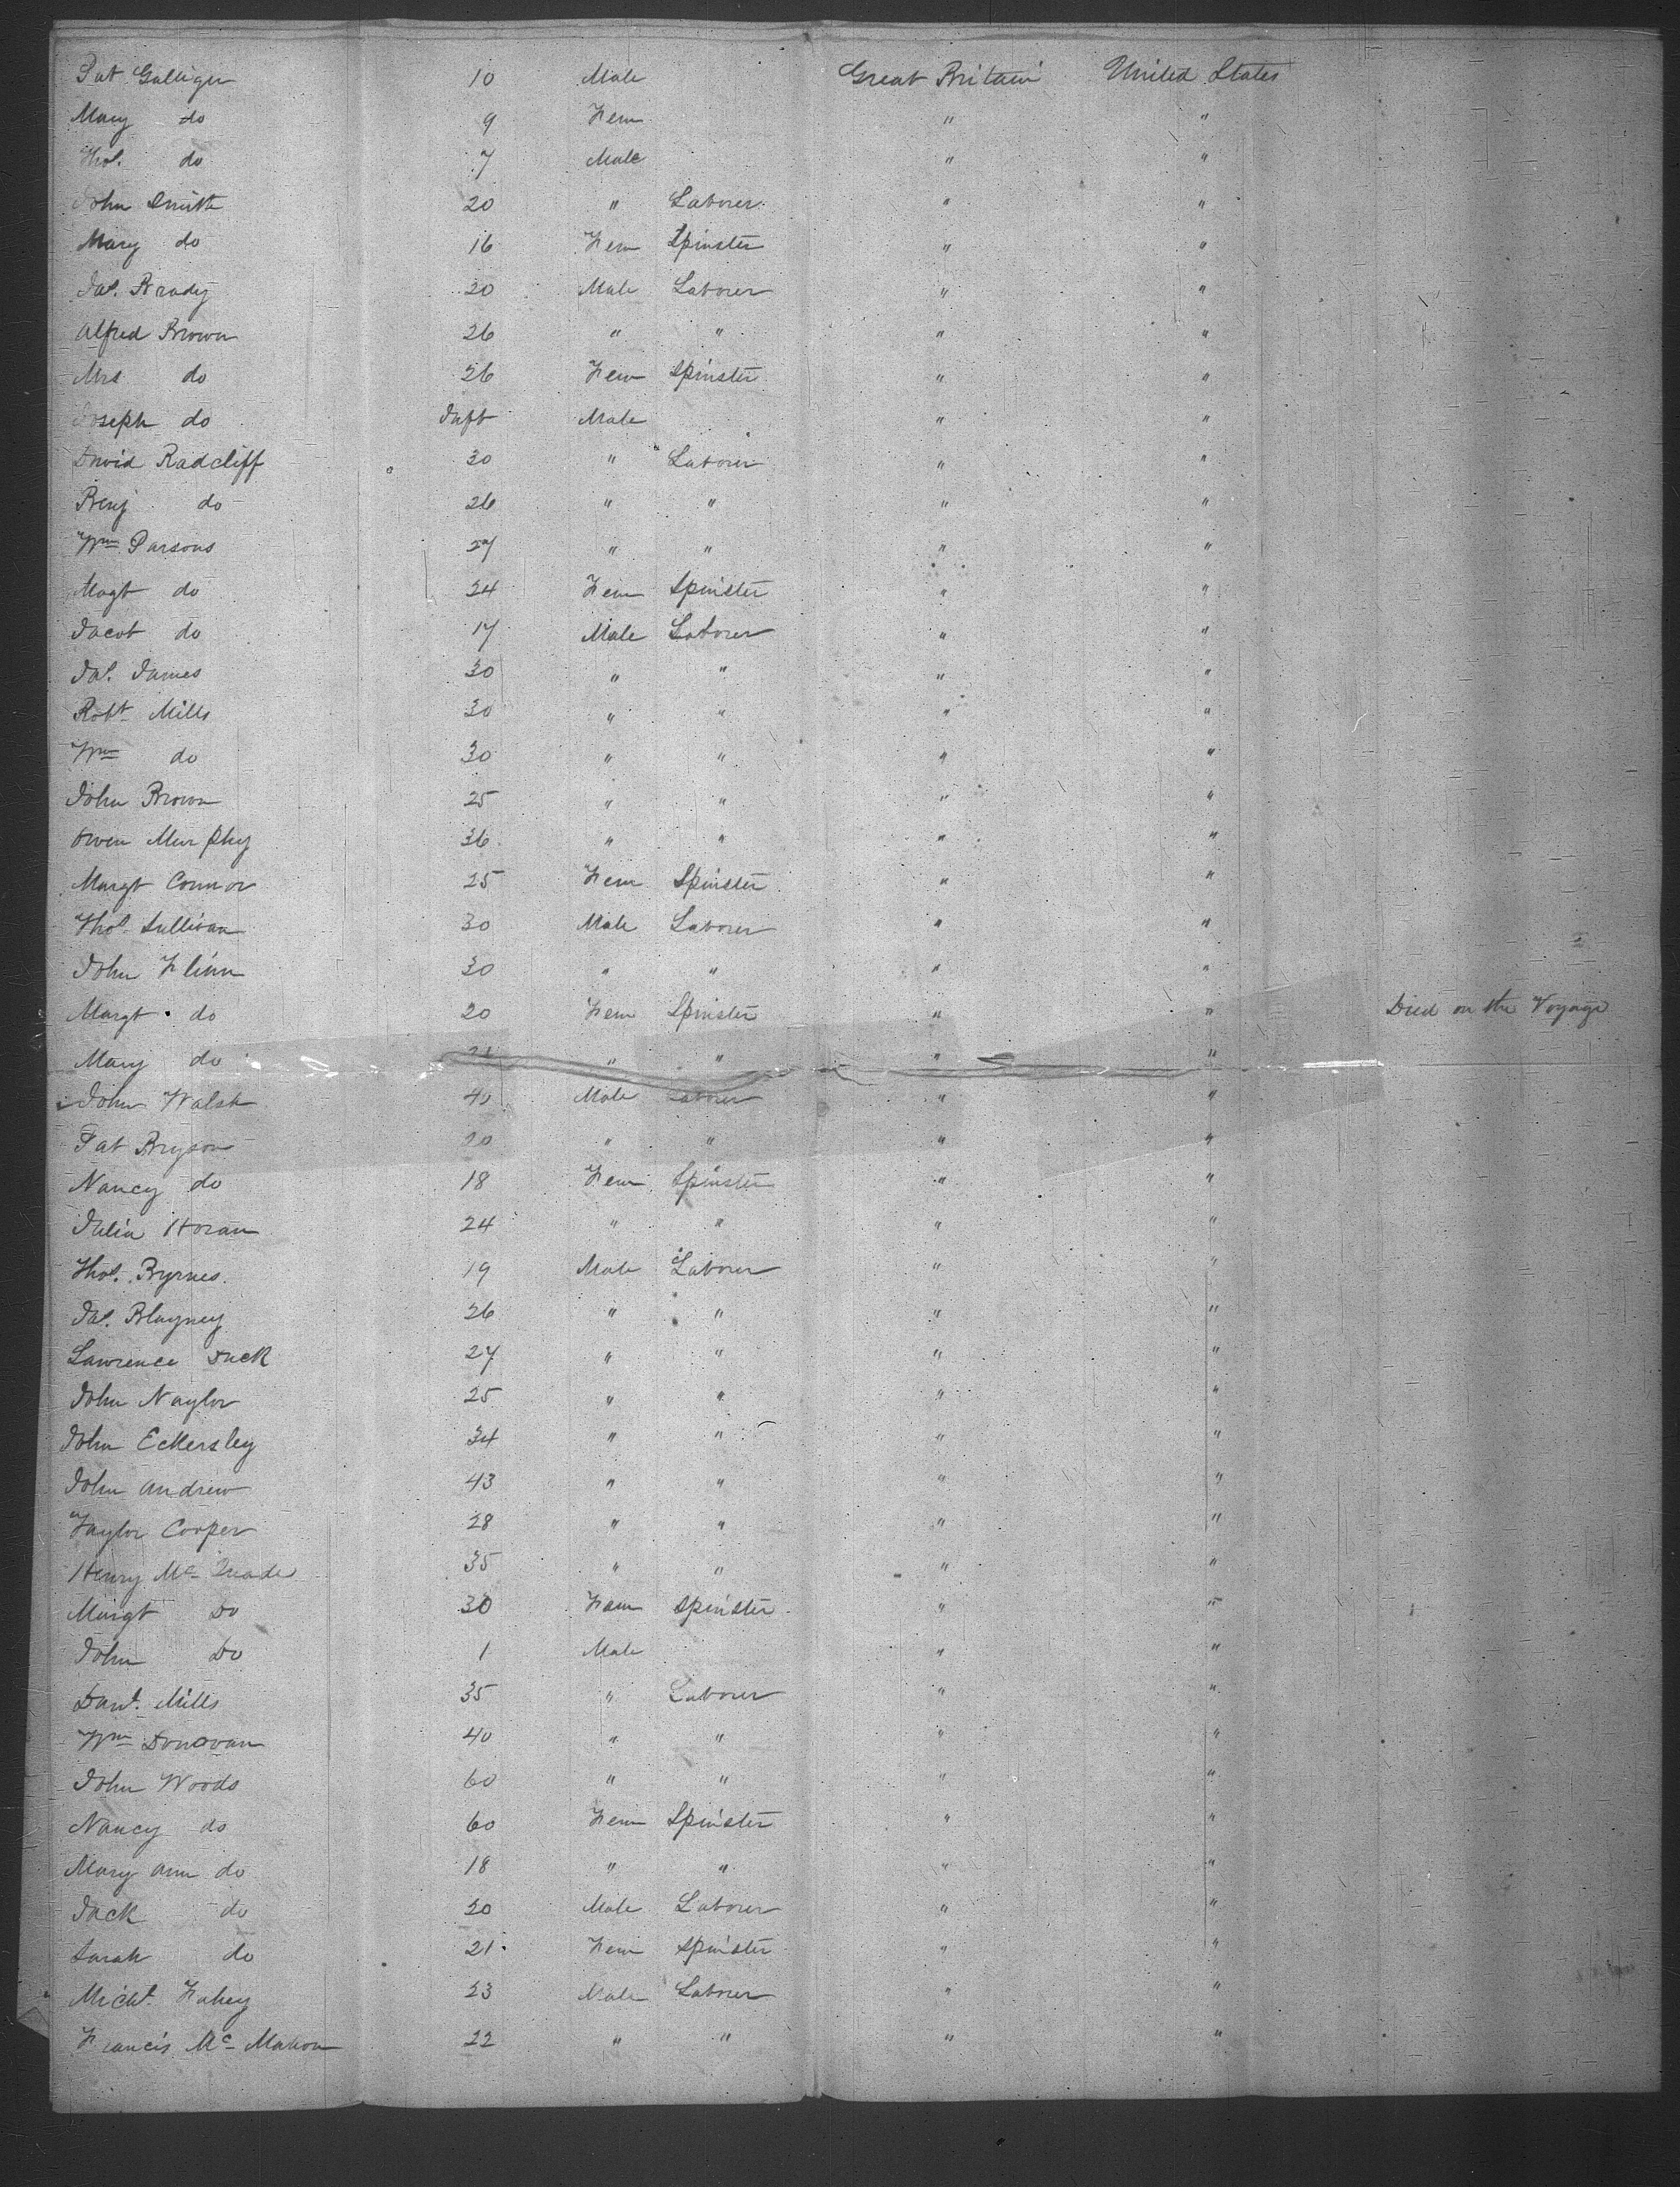 Pat Galliger 10 Male Great Britain United States
Mary do 9 Fem " "
Thos. do 7 Male " "
John Smith 20 " Laborer " "
Mary do 16 Fem Spinster " "
Jas. Brady 30 Male Laborer " "
Alfred Brown 26 " " " "
Mrs do 26 Fem Spinster " "
Joseph do Inft Male " "
David Radcliff 30 " Laborer " "
Benj do 26 " " " "
Wm Parsons 27 " " " "
Magt do 24 Fem Spinster " "
Jacob do 17 Male Laborer " "
Jas. James 30 " " " "
Robt Mills 30 " " " "
Wm do 30 " " " "
John Brown 25 " " " "
Owen Murphy 36 " " " "
Margt Connor 25 Fem Spinster " "
Thos. Sullivan 30 Male Laborer " "
John Flinn 30 " " " "
Margt do 20 Fem Spinster " " Died on the Voyage
Mary do " " " "
John Walsh 40 Male Laborer " "
Pat Bryson 20 " " " "
Nancy do 18 Fem Spinster " "
Julia Horan 24 " " " "
Thos. Byrnes 19 Male Laborer " "
Jas. Blayney 26 " " " "
Lawrence Duck 27 " " " "
John Naylor 25 " " " "
John Eckersley 34 " " " "
John Andrew 43 " " " "
Taylor Cooper 28 " " " "
Henry Mc Quade 35 " " " "
Margt Do 30 Fem Spinster " "
John Do 1 Male " "
Danl. Mills 35 " Laborer " "
Wm Donovan 40 " " " "
John Woods 60 " " " "
Nancy do 60 Fem Spinster " "
Mary Ann do 18 " " " "
Jack do 20 Male Laborer " "
Sarah do 21 Fem Spinster " "
Michl. Fahey 23 Male Laborer " "
Francis Mc Mahon 22 " " " "